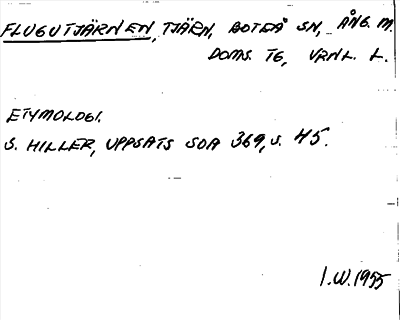 FLUGUTJÄRNEN, TJÄRN, BOTEÅ SN, ÅNG. M.
DOMS. TG, VRNL. L.
ETYMOLOGI.
S. HILLER, UPPSATS SOA 369, S. 45.
I.W. 1955